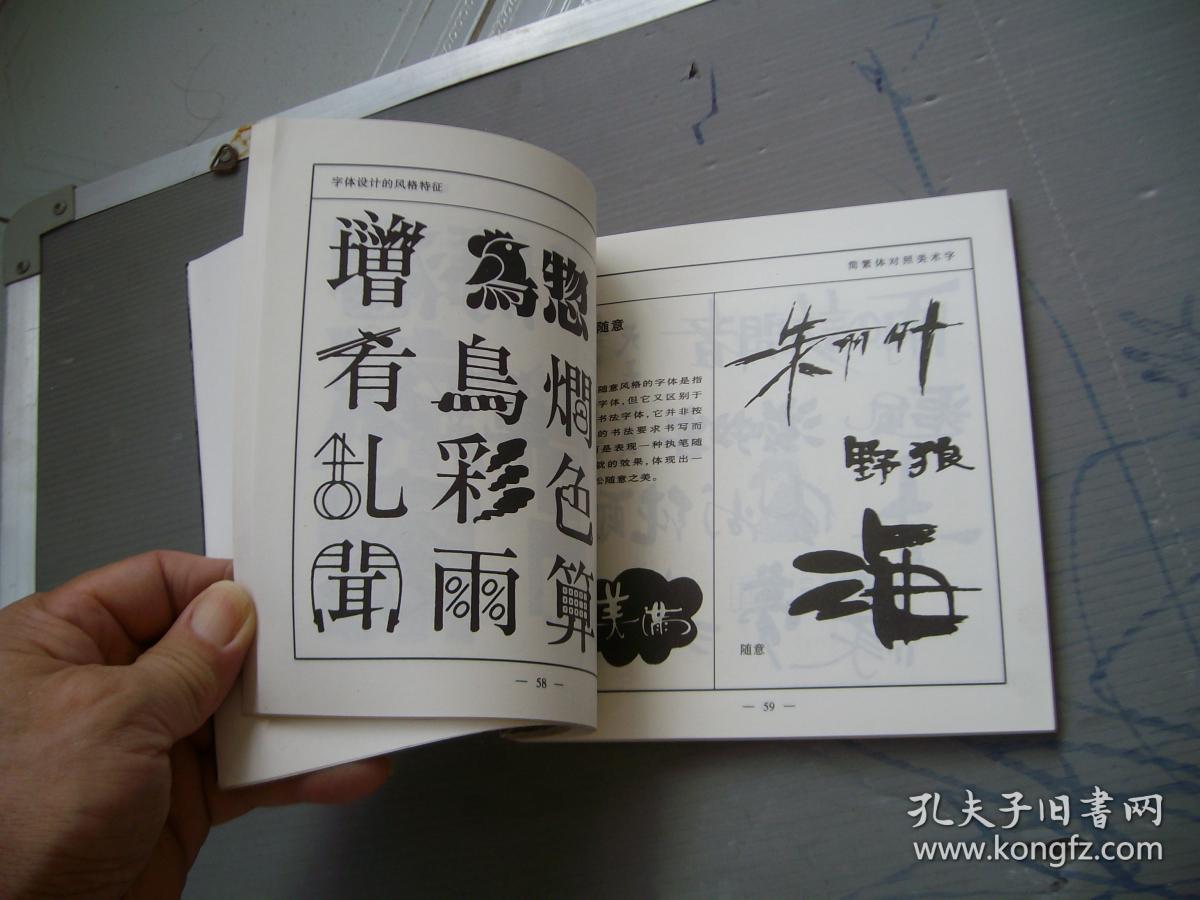 字体设计的风格特征
增 為 惣
肴 鳥 燗
乱 彩 色
聞 雨 算
— 58 —
简繁体对照美术字
随意
随意风格的字体是指
字体，但它又区别于
书法字体，它并非按
的书法要求书写而
是表现一种执笔随
就的效果，体现出一
公随意之美。
美满
朱丽叶
野狼
海
随意
— 59 —
孔夫子旧书网
www.kongfz.com